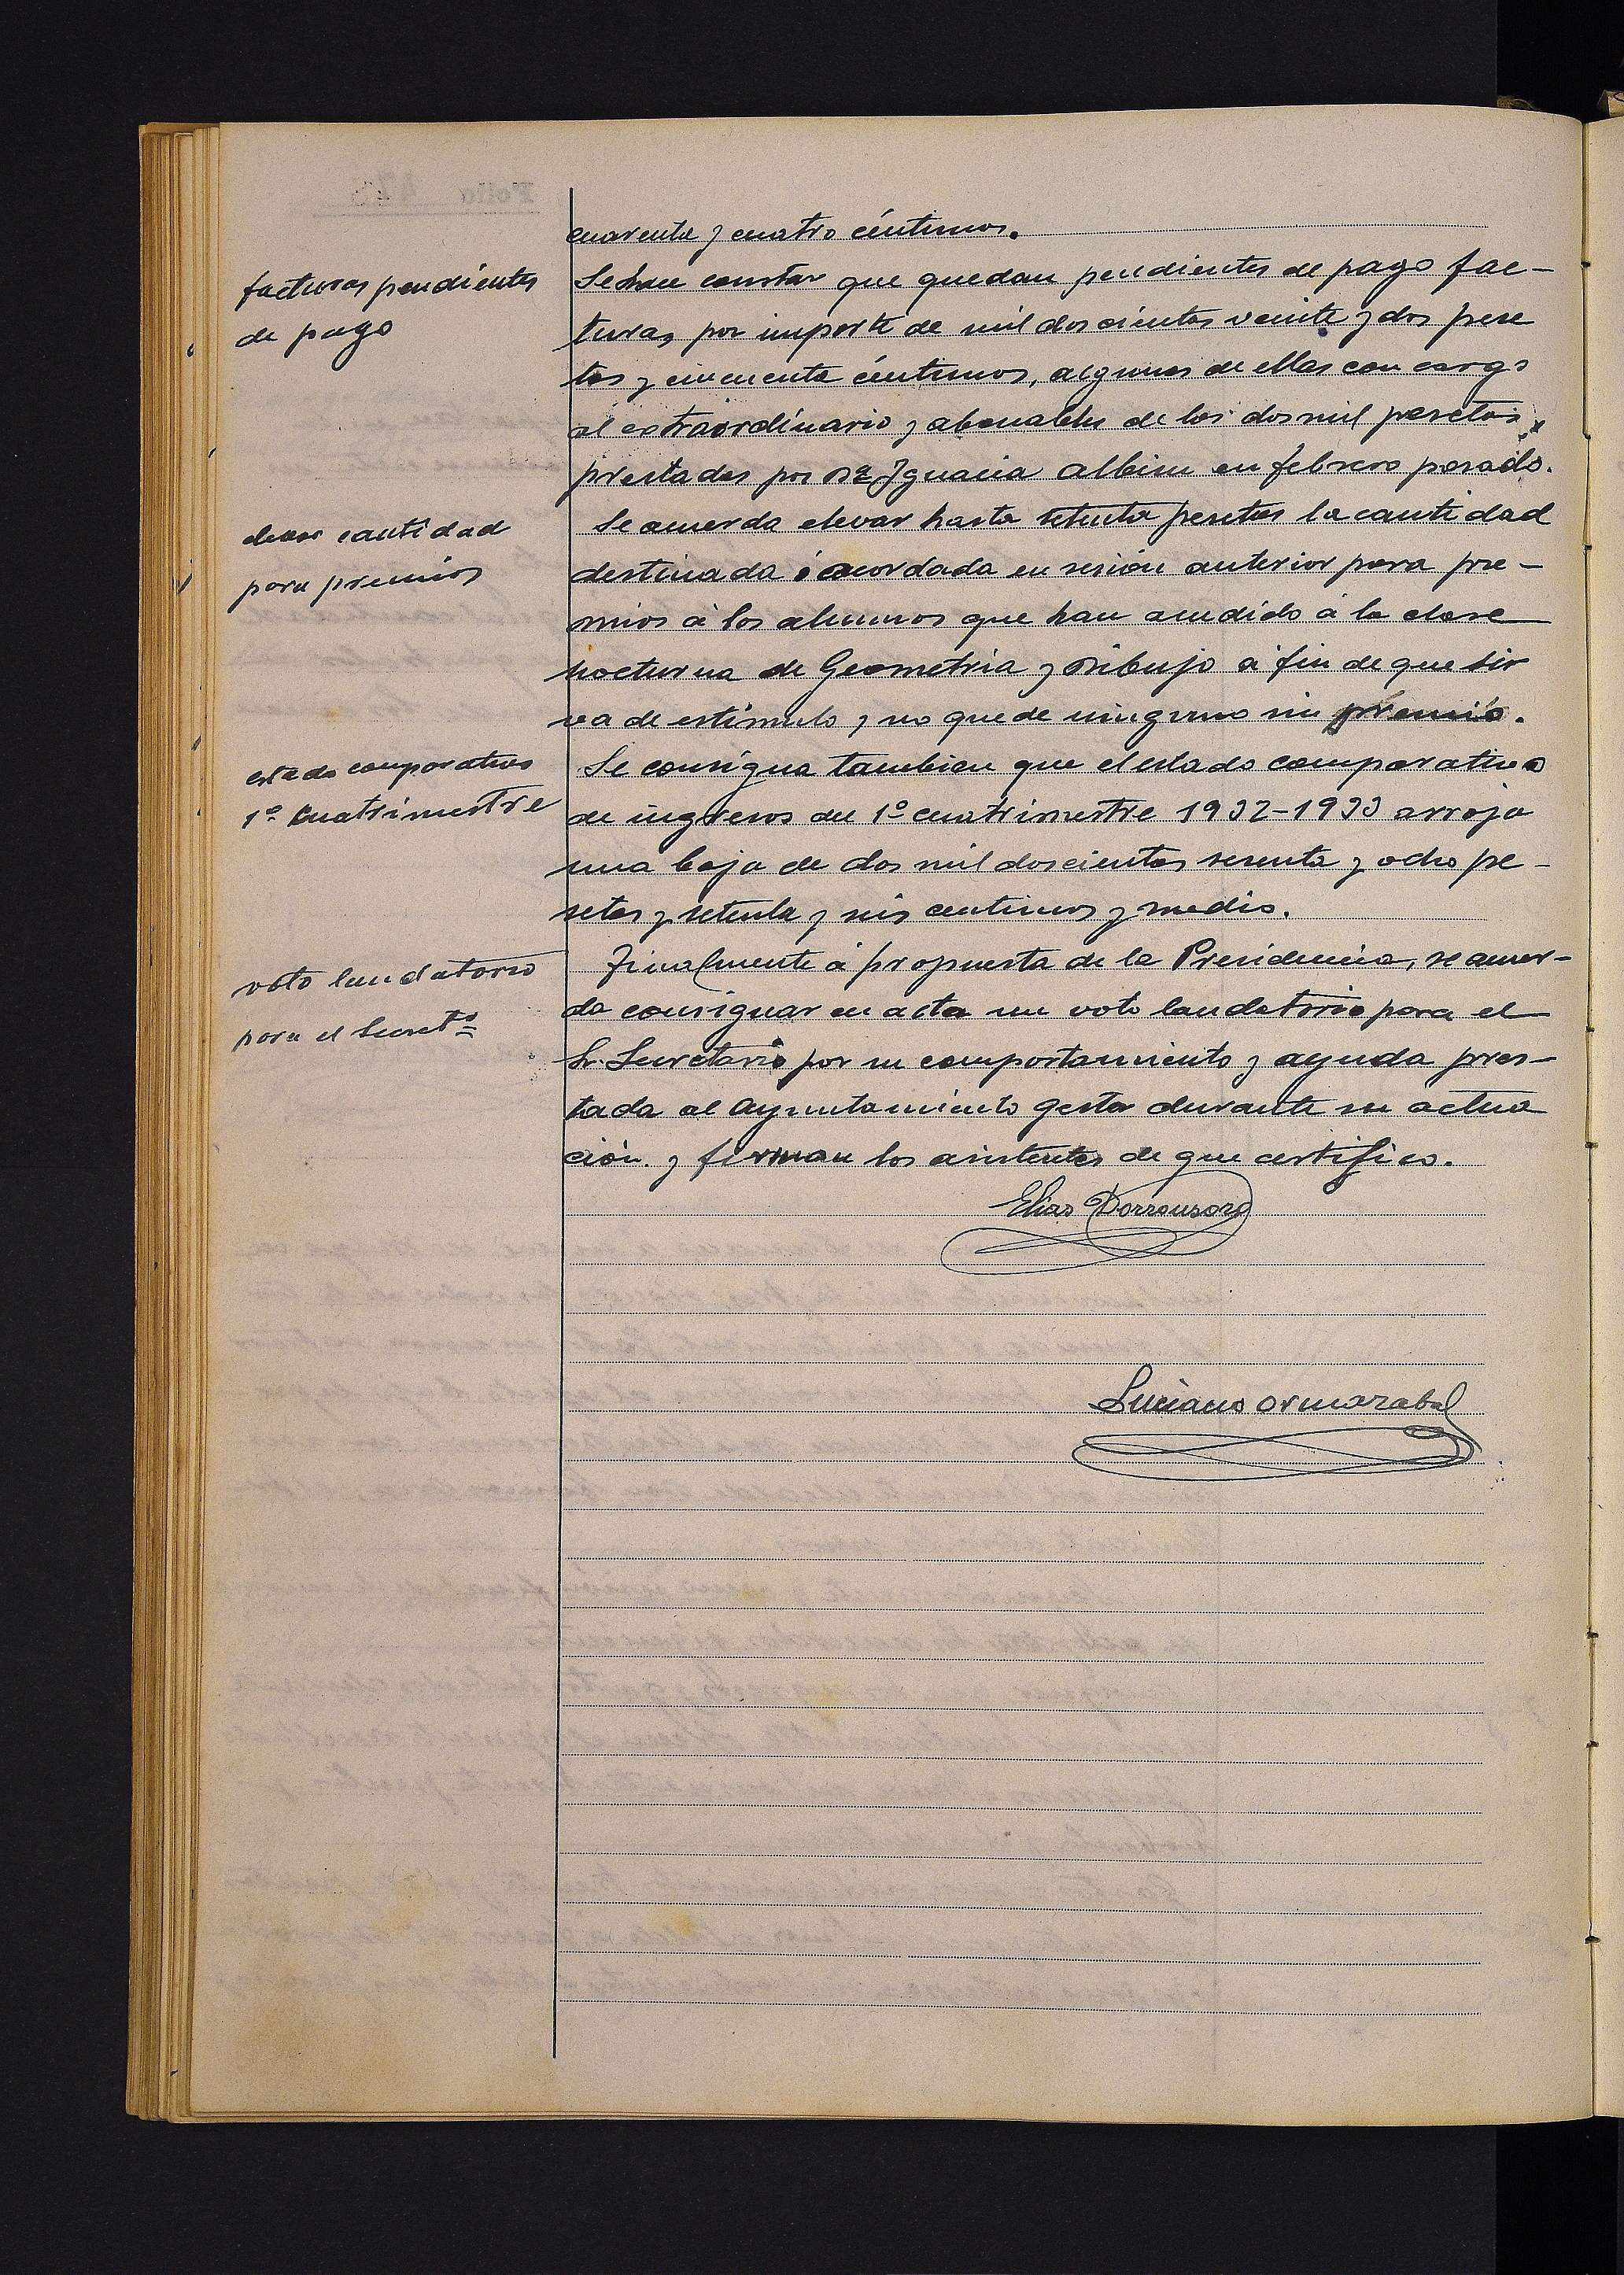 cuarenta y cuatro céntimos.
facturas pendientes
de pago
Se hace constar que quedan pendientes de pago fac-
turas por importe de mil doscientas veinte y dos pese
tas y cincuenta céntimos, algunas de ellas con cargo
al extraordinario y abonables de las dos mil pesetas
prestadas por Dª Ignacia Albisu en febrero pasado.
elevar cantidad
para premios
Se acuerda elevar hasta setenta pesetas la cantidad
destinada ó acordada en sesión anterior para pre-
mios á los alumnos que han acudido á la clase
nocturna de Geometria y Dibujo á fin de que sir
va de estimulo y no quede ninguno sin premio.
estado comparativo
1º cuatrimestre
Se consigna tambien que el estado comparativo
de ingresos del 1º cuatrimestre 1932-1933 arroja
una baja de dos mil doscientas sesenta y ocho pe-
setas y setenta y seis centimos y medio.
voto laudatorio
para el Secretº
Finalmente á propuesta de la Presidencia, se acuer-
da consignar en acta un voto laudatorio para el
Sr. Secretario por su comportamiento y ayuda pres-
tada al Ayuntamiento gestor durante su actua
ción. y firman los asistentes de que certifico.
Elias Dorronsoro
Luciano Ormazabal